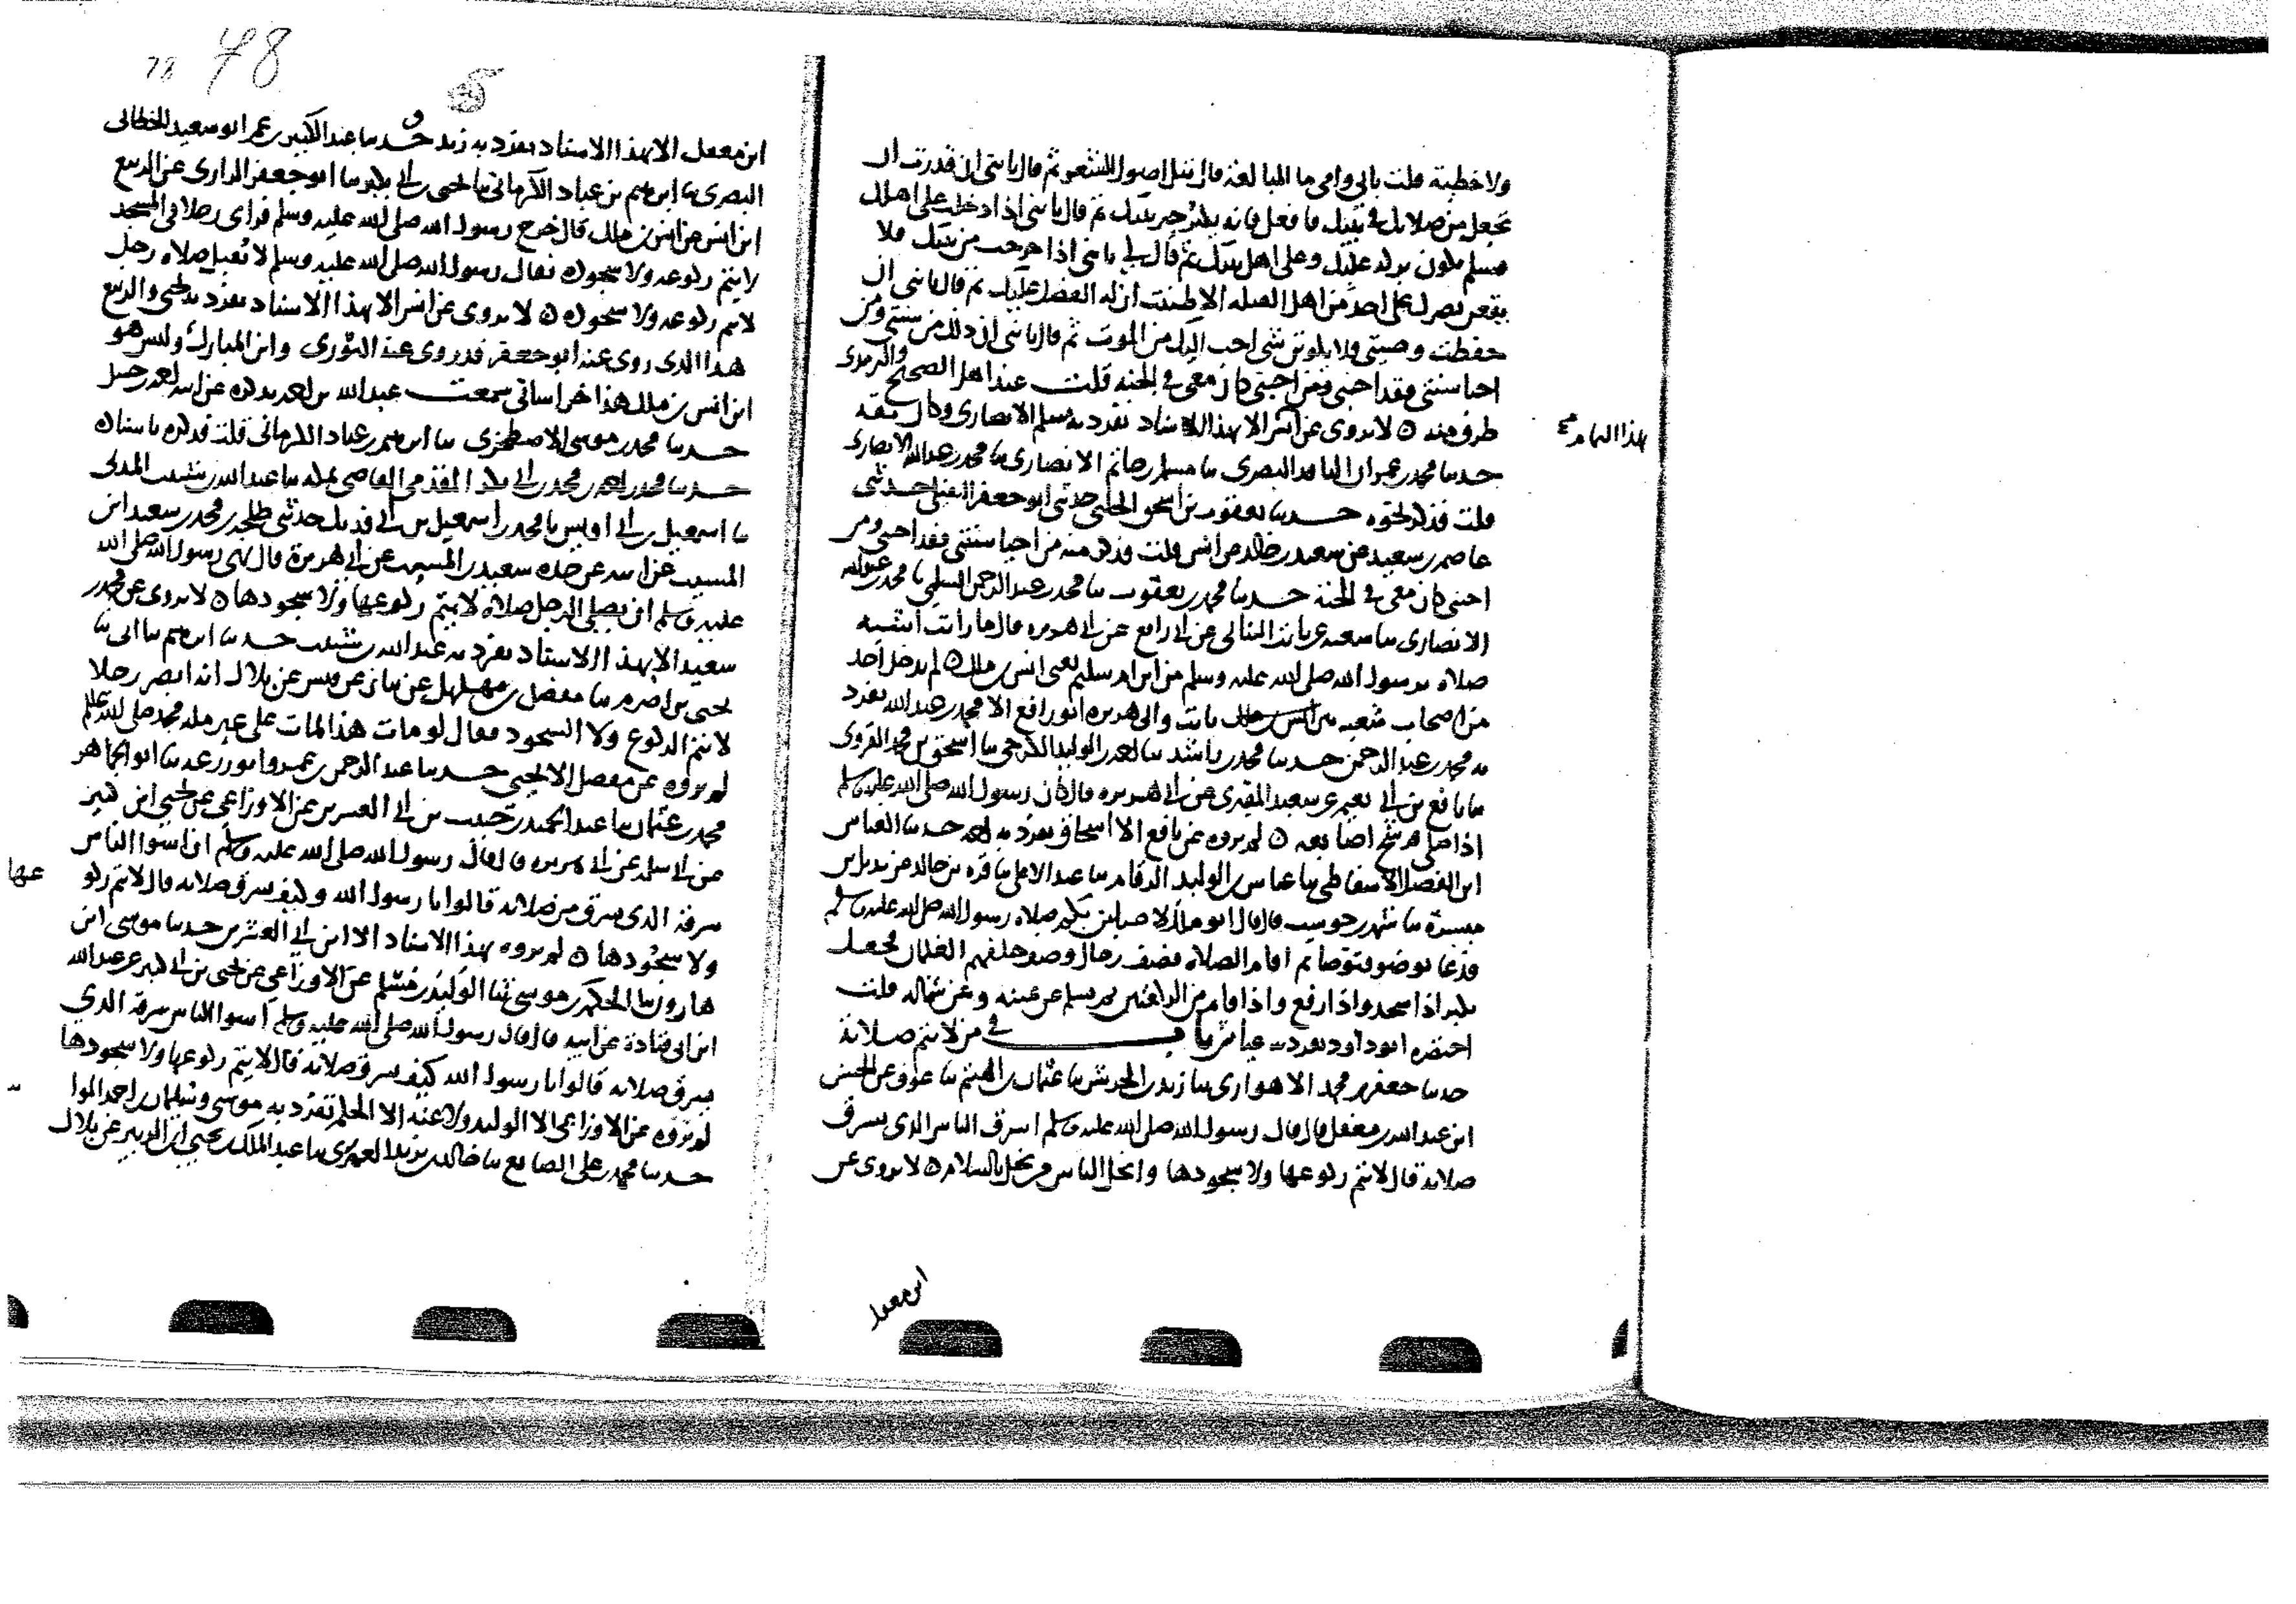 ولا خطيئة قلت بابي وامي ما المبالغة قال تبل اصول الشعر ثم قال يا بني ان قدرت ان
تجعل من صلاتك في بيتك فافعل فانه يكثر خير بيتك ثم قال يا بني اذا دخلت على اهلك
فسلم يكون بركة عليك وعلى اهل بيتك ثم قال لي يا بني اذا خرجت من بيتك فلا
يقعن بصرك على احد من اهل القبلة الا ظننت ان له الفضل عليك ثم قال يا بني ان
حفظت وصيتي فلا يكونن شي احب اليك من الموت ثم قال يا بني ان ذلك من سنتي ومن
احيا سنتي فقد احبني ومن احبني كان معي في الجنة قلت عند اهل الصحيح والترمذي
طرف منه لا يروى عن انس الا بهذا الاسناد تفرد به مسلم الانصاري وكان ثقة
حدثنا محمد بن عمران الناقد البصري ثنا مسلم بن حاتم الانصاري ثنا محمد بن عبد الله الانصاري
قلت فذكر نحوه حدثنا يعقوب بن اسحق الحلبي حدثني ابو جعفر النفيلي حدثني
عاصم بن سعيد عن معبد بن خالد عن انس قلت فذكر منه من احيا سنتي فقد احبني ومن
احبني كان معي في الجنة حدثنا محمد بن يعقوب ثنا محمد بن عبد الرحمن السلمي ثنا محمد بن عبد الله
الانصاري ثنا شعبة عن ثابت البناني عن ابي رافع عن ابي هريرة قال ما رايت اشبه
صلاة برسول الله صلى الله عليه وسلم من ابن ام سليم يعني انس بن ملك لم يدخل احد
من اصحاب شعبة بين ثابت وابي هريرة ابو رافع الا محمد بن عبد الله تفرد
به محمد بن عبد الرحمن حدثنا محمد بن راشد ثنا احمد بن الوليد الكرخي ثنا اسحق بن محمد الفروي
ثنا نافع بن ابي نعيم عن سعيد المقبري عن ابي هريرة قال كان رسول الله صلى الله عليه وسلم
اذا صلى فرج اصابعه لم يروه عن نافع الا اسحاق تفرد به احمد حدثنا العباس
ابن الفضل الاسفاطي ثنا عباس بن الوليد الرقام ثنا عبد الاعلى ثنا قرة بن خالد عن بديل بن
ميسرة ثنا شهر بن حوشب قال قال ابو ملك لاصلين بكم صلاة رسول الله صلى الله عليه وسلم
فدعا بوضوء فتوضا ثم اقام الصلاة فصف رجال وصف خلفهم الغلمان فجعل
يكبر اذا سجد واذا رفع واذا قام من الركعتين ثم يسلم عن يمينه وعن شماله قلت
اختصره ابو داود تفرد به عياش باب في من لا يتم صلاته
حدثنا جعفر بن محمد الاهوازي ثنا زيد بن الحريش ثنا عثمان بن الهيثم ثنا عوف عن الحسن
ابن عبد الله بن مغفل قال قال رسول الله صلى الله عليه وسلم اسرق الناس الذي يسرق
صلاته قال لا يتم ركوعها ولا سجودها وابخل الناس من بخل بالسلام لا يروى عن
ابن مغفل
78 78
ابن مغفل الا بهذا الاسناد تفرد به زيد حدثنا عبد الكبير بن عمر ابو سعيد الخطابي
البصري ثنا ابرهيم بن عباد الكرماني ثنا يحيى بن ابي بكير ثنا ابو جعفر الرازي عن الربيع
ابن انس عن انس بن ملك قال خرج رسول الله صلى الله عليه وسلم فراى رجلا في المسجد
لا يتم ركوعه ولا سجوده فقال رسول الله صلى الله عليه وسلم لا تقبل صلاة رجل
لا يتم ركوعه ولا سجوده لا يروى عن انس الا بهذا الاسناد تفرد به يحيى والربيع
هذا الذي روى عنه ابو جعفر قد روى عنه الثوري وابن المبارك وليس هو
ابن انس بن ملك هذا خراساني سمعت عبد الله بن احمد يذكره عن ابيه احمد بن حنبل
حدثنا محمد بن موسى الاصطخري ثنا ابرهيم بن عباد الكرماني قلت فذكره باسناده
حدثنا محمد بن احمد بن محمد بن ابي بكر المقدمي القاضي بمكة ثنا عبد الله بن شبيب المدني
ثنا اسمعيل بن ابي اويس ثنا محمد بن اسمعيل بن ابي فديك حدثني طلحة بن محمد بن سعيد ابن
المسيب عن ابيه عن جده سعيد بن المسيب عن ابي هريرة قال نهى رسول الله صلى الله
عليه وسلم ان يصلي الرجل صلاة لا يتم ركوعها ولا سجودها لا يروى عن محمد بن
سعيد الا بهذا الاسناد تفرد به عبد الله بن شبيب حدثنا ابرهيم ثنا ابي ثنا
يحيى بن اضرم ثنا مفضل بن مهلهل عن بيان عن قيس عن بلال انه ابصر رجلا
لا يتم الركوع ولا السجود فقال لو مات هذا لمات على غير ملة محمد صلى الله عليه وسلم
لم يروه عن مفضل الا يحيى حدثنا عبد الرحمن بن عمرو ابو زرعة ثنا ابو الجماهر
محمد بن عثمان ثنا عبد الحميد بن حبيب بن ابي العشرين عن الاوزاعي عن يحيى ابن كثير
عن ابي سلمة عن ابي هريرة قال قال رسول الله صلى الله عليه وسلم ان اسوا الناس
سرقة الذي يسرق من صلاته قالوا يا رسول الله وكيف يسرق صلاته قال لا يتم ركو عها
ولا سجودها لم يروه بهذا الاسناد الا ابن ابي العشرين حدثنا موسى ابن
هارون ثنا الحكم بن موسى ثنا الوليد بن مسلم عن الاوزاعي عن يحيى بن ابي كثير عن عبد الله
ابن ابي قتادة عن ابيه قال قال رسول الله صلى الله عليه وسلم اسوا الناس سرقة الذي
يسرق صلاته قالوا يا رسول الله كيف يسرق صلاته قال لا يتم ركوعها ولا سجودها
لم يروه عن الاوزاعي الا الوليد ولا عنه الا الحكم تفرد به موسى وسليمان بن احمد الوا
حدثنا محمد بن علي الصايغ ثنا خالد بن يزيد العمري ثنا عبد الملك بن يحيى ابن الزبير عن بلال